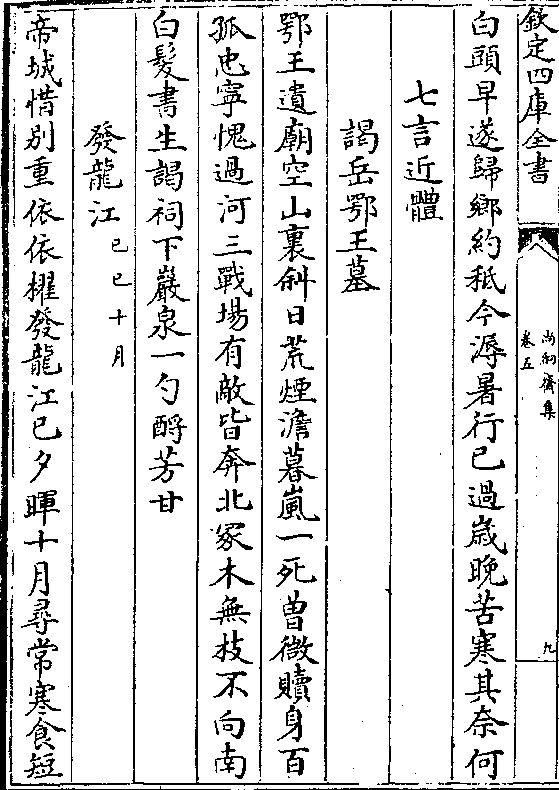 欽定四庫全書
尚絅齋集
卷五
九
白頭早遂歸鄉約秪今溽暑行已過歲晚苦寒其奈何
七言近體
謁岳鄂王墓
鄂王遺廟空山裏斜日荒煙澹暮嵐一死曾微贖身百
孤忠寧愧過河三戰場有敵皆奔北冢木無枝不向南
白髮書生謁祠下巖泉一勺酹芳甘
發龍江己巳十月
帝城惜别重依依櫂發龍江已夕暉十月尋常寒食短